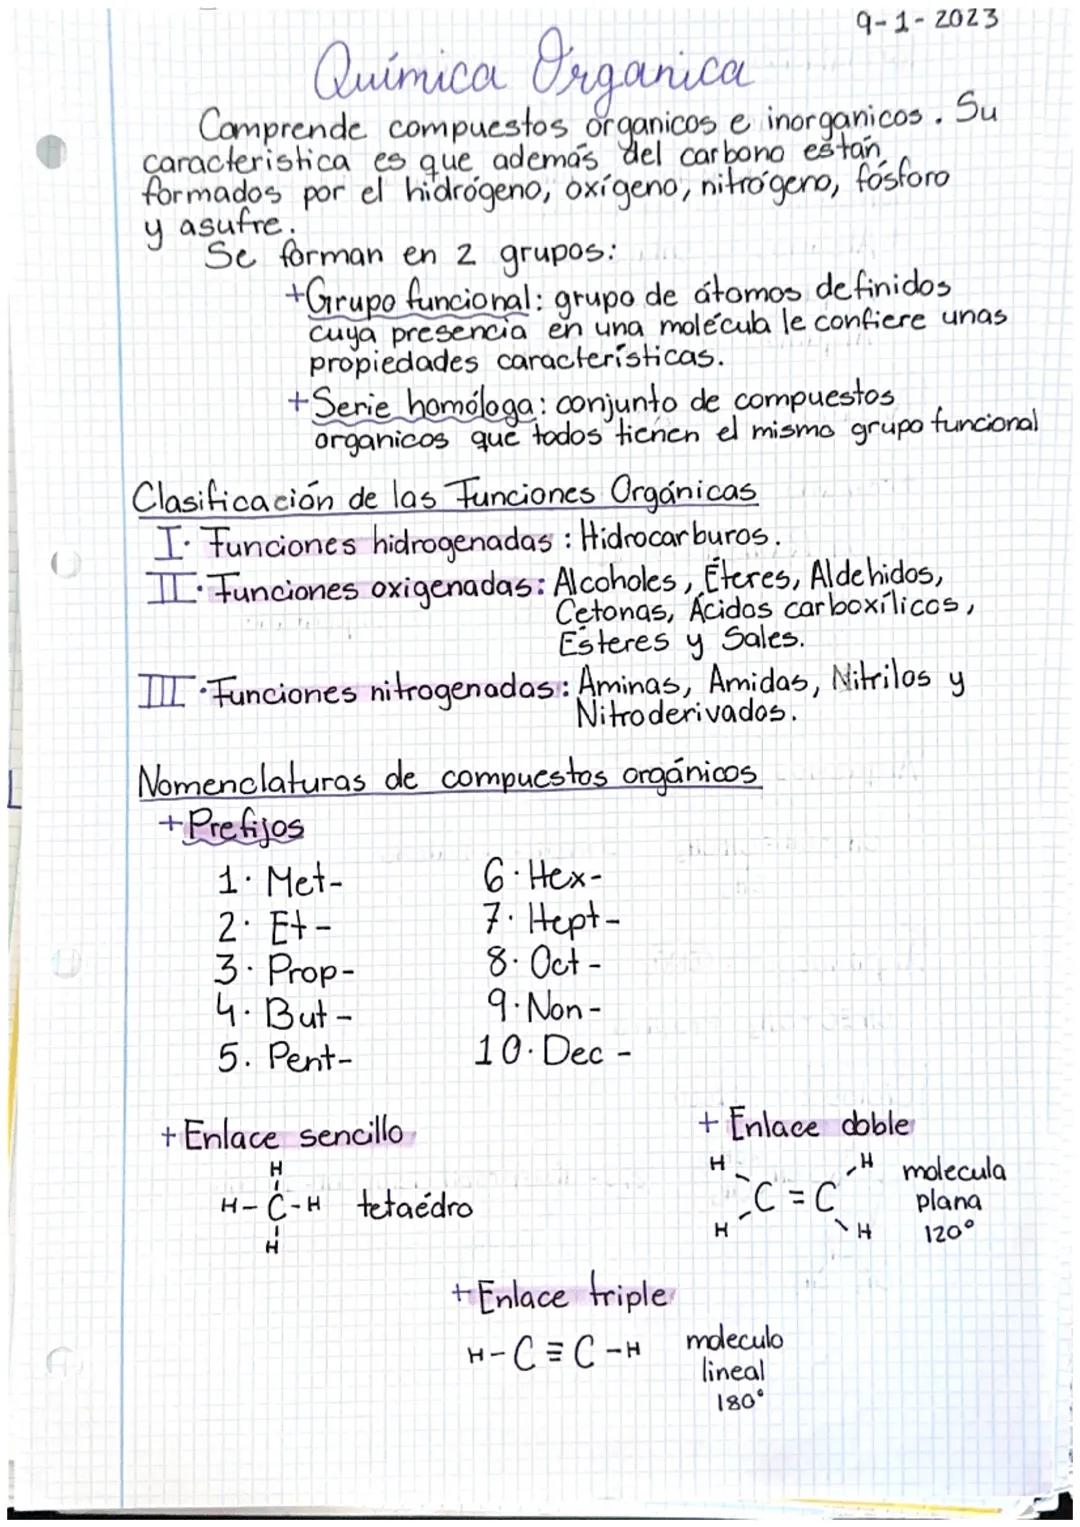 9-1-2023
Química Organica
Comprende compuestos organicos e inorganicos. Su
caracteristica es que además del carbono están
formados por el hidrógeno, oxígeno, nitrógeno, fósforo
y asufre.
Se forman en 2 grupos:
+Grupo funcional: grupo de átomos definidos
cuya presencia en una molécula le confiere unas
propiedades características.
+Serie homóloga: conjunto de compuestos
organicos que todos tienen el mismo grupo funcional
Clasificación de las Funciones Orgánicas
I. Funciones hidrogenadas: Hidrocarburos.
II. Funciones oxigenadas: Alcoholes, Éteres, Aldehidos,
Cetonas, Ácidos carboxílicos,
Ésteres y Sales.
III. Funciones nitrogenadas: Aminas, Amidas, Nitrilos y
Nitroderivados.
Nomenclaturas de compuestos orgánicos
+Prefijos
1. Met- 6. Hex-
2. Et- 7. Hept-
3. Prop- 8. Oct-
4. But- 9. Non-
5. Pent- 10. Dec-
+ Enlace sencillo + Enlace doble
H H H molecula
H-C-H tetaédro C=C plana
H H H 120°
+ Enlace triple
H-C≡C-H moleculo
lineal
180°